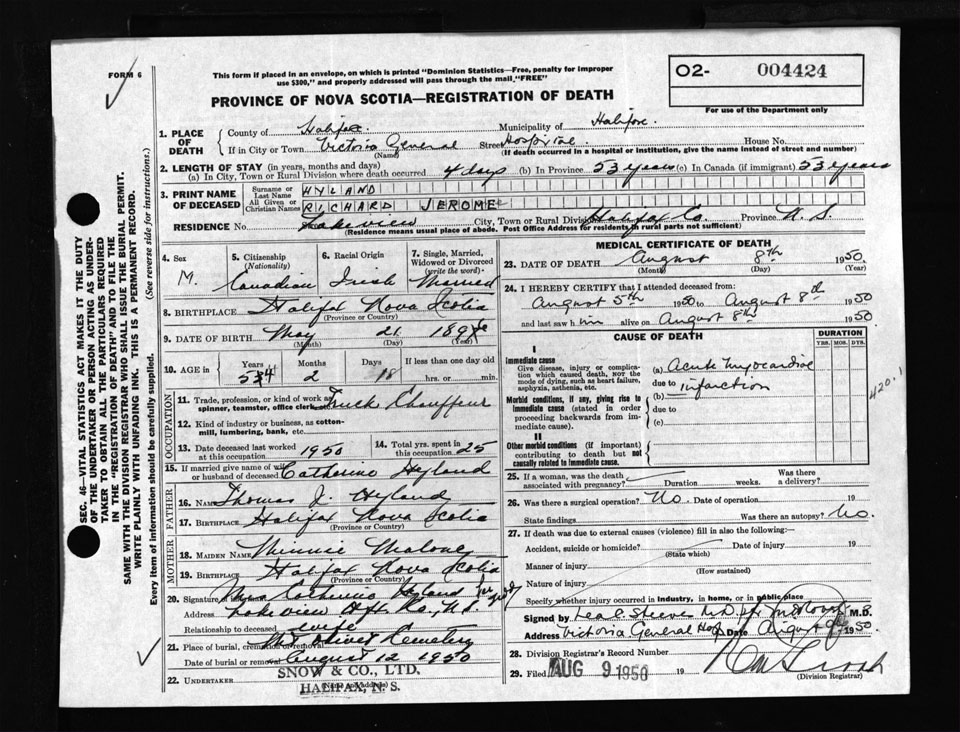 FORM 6
This form if placed in an envelope, on which is printed "Dominion Statistics—Free, penalty for improper
use $300," and properly addressed will pass through the mail, "FREE"
O2- 004424
For use of the Department only
PROVINCE OF NOVA SCOTIA—REGISTRATION OF DEATH
SEC. 46—VITAL STATISTICS ACT MAKES IT THE DUTY
OF THE UNDERTAKER OR PERSON ACTING AS UNDER-
TAKER TO OBTAIN ALL THE PARTICULARS REQUIRED
IN THE "REGISTRATION OF DEATH" AND TO FILE THE
SAME WITH THE DIVISION REGISTRAR WHO SHALL ISSUE THE BURIAL PERMIT.
WRITE PLAINLY WITH UNFADING INK. THIS IS A PERMANENT RECORD.
Every item of information should be carefully supplied. (See reverse side for instructions.)
1. PLACE OF DEATH
County of Halifax. Municipality of Halifax.
If in City or Town Victoria General Street Hospital House No.
(Name) (If death occurred in a hospital or institution, give the name instead of street and number)
2. LENGTH OF STAY (in years, months and days)
(a) In City, Town or Rural Division where death occurred 4 days (b) In Province 53 years (c) In Canada (if immigrant) 53 years
3. PRINT NAME OF DECEASED
Surname or Last Name HYLAND
All Given or Christian Names RICHARD JEROME
RESIDENCE No. Lakeview City, Town or Rural Division Halifax Co Province N.S.
(Residence means usual place of abode. Post Office Address for residents in rural parts not sufficient)
4. Sex M.
5. Citizenship (Nationality) Canadian
6. Racial Origin Irish
7. Single, Married, Widowed or Divorced (write the word) Married
8. BIRTHPLACE Halifax Nova Scotia
(Province or Country)
9. DATE OF BIRTH May 21
(Month) (Day) (Year)
10. AGE in Years Months 2 Days 18 If less than one day old hrs. or min.
OCCUPATION
11. Trade, profession, or kind of work as spinner, teamster, office clerk, etc. Truck Chauffeur
12. Kind of industry or business, as cotton-mill, lumbering, bank, etc.
13. Date deceased last worked at this occupation 1950
14. Total yrs. spent in this occupation 25
15. If married give name of wife or husband of deceased Catherine Hyland
FATHER
16. Name Thomas J. Hyland
17. Birthplace Halifax Nova Scotia
(Province or Country)
MOTHER
18. Maiden Name Minnie Maloney
19. Birthplace Halifax Nova Scotia
(Province or Country)
20. Signature of Mrs Catherine Hyland
Address Lakeview Hfx Co. N.S.
Relationship to deceased wife
21. Place of burial, cremation or removal Mt Olivet Cemetery
Date of burial or removal August 12 1950
22. UNDERTAKER SNOW & CO., LTD.
HALIFAX, N. S.
MEDICAL CERTIFICATE OF DEATH
23. DATE OF DEATH August 8th 1950
(Month) (Day) (Year)
24. I HEREBY CERTIFY that I attended deceased from:
August 5th 1950 to August 8th 1950
and last saw h im alive on August 8th 1950
CAUSE OF DEATH
DURATION
YRS. MOS. DYS.
I
Immediate cause
Give disease, injury or complication which caused death, not the mode of dying, such as heart failure, asphyxia, asthenia, etc.
(a) Acute Myocardial
due to infarction
Morbid conditions, if any, giving rise to immediate cause (stated in order proceeding backwards from immediate cause).
(b)
due to
(c)
II
Other morbid conditions (if important) contributing to death but not causally related to immediate cause.
420.1
25. If a woman, was the death associated with pregnancy? Duration weeks. Was there a delivery?
26. Was there a surgical operation? No. Date of operation 19
State findings Was there an autopsy? No.
27. If death was due to external causes (violence) fill in also the following:—
Accident, suicide or homicide? Date of injury 19
(State which)
Manner of injury
(How sustained)
Nature of injury
Specify whether injury occurred in industry, in home, or in public place
Signed by M.D.
Address Victoria General Hosp. Date August 9th 1950
28. Division Registrar's Record Number
29. Filed AUG 9 1950
(Division Registrar)